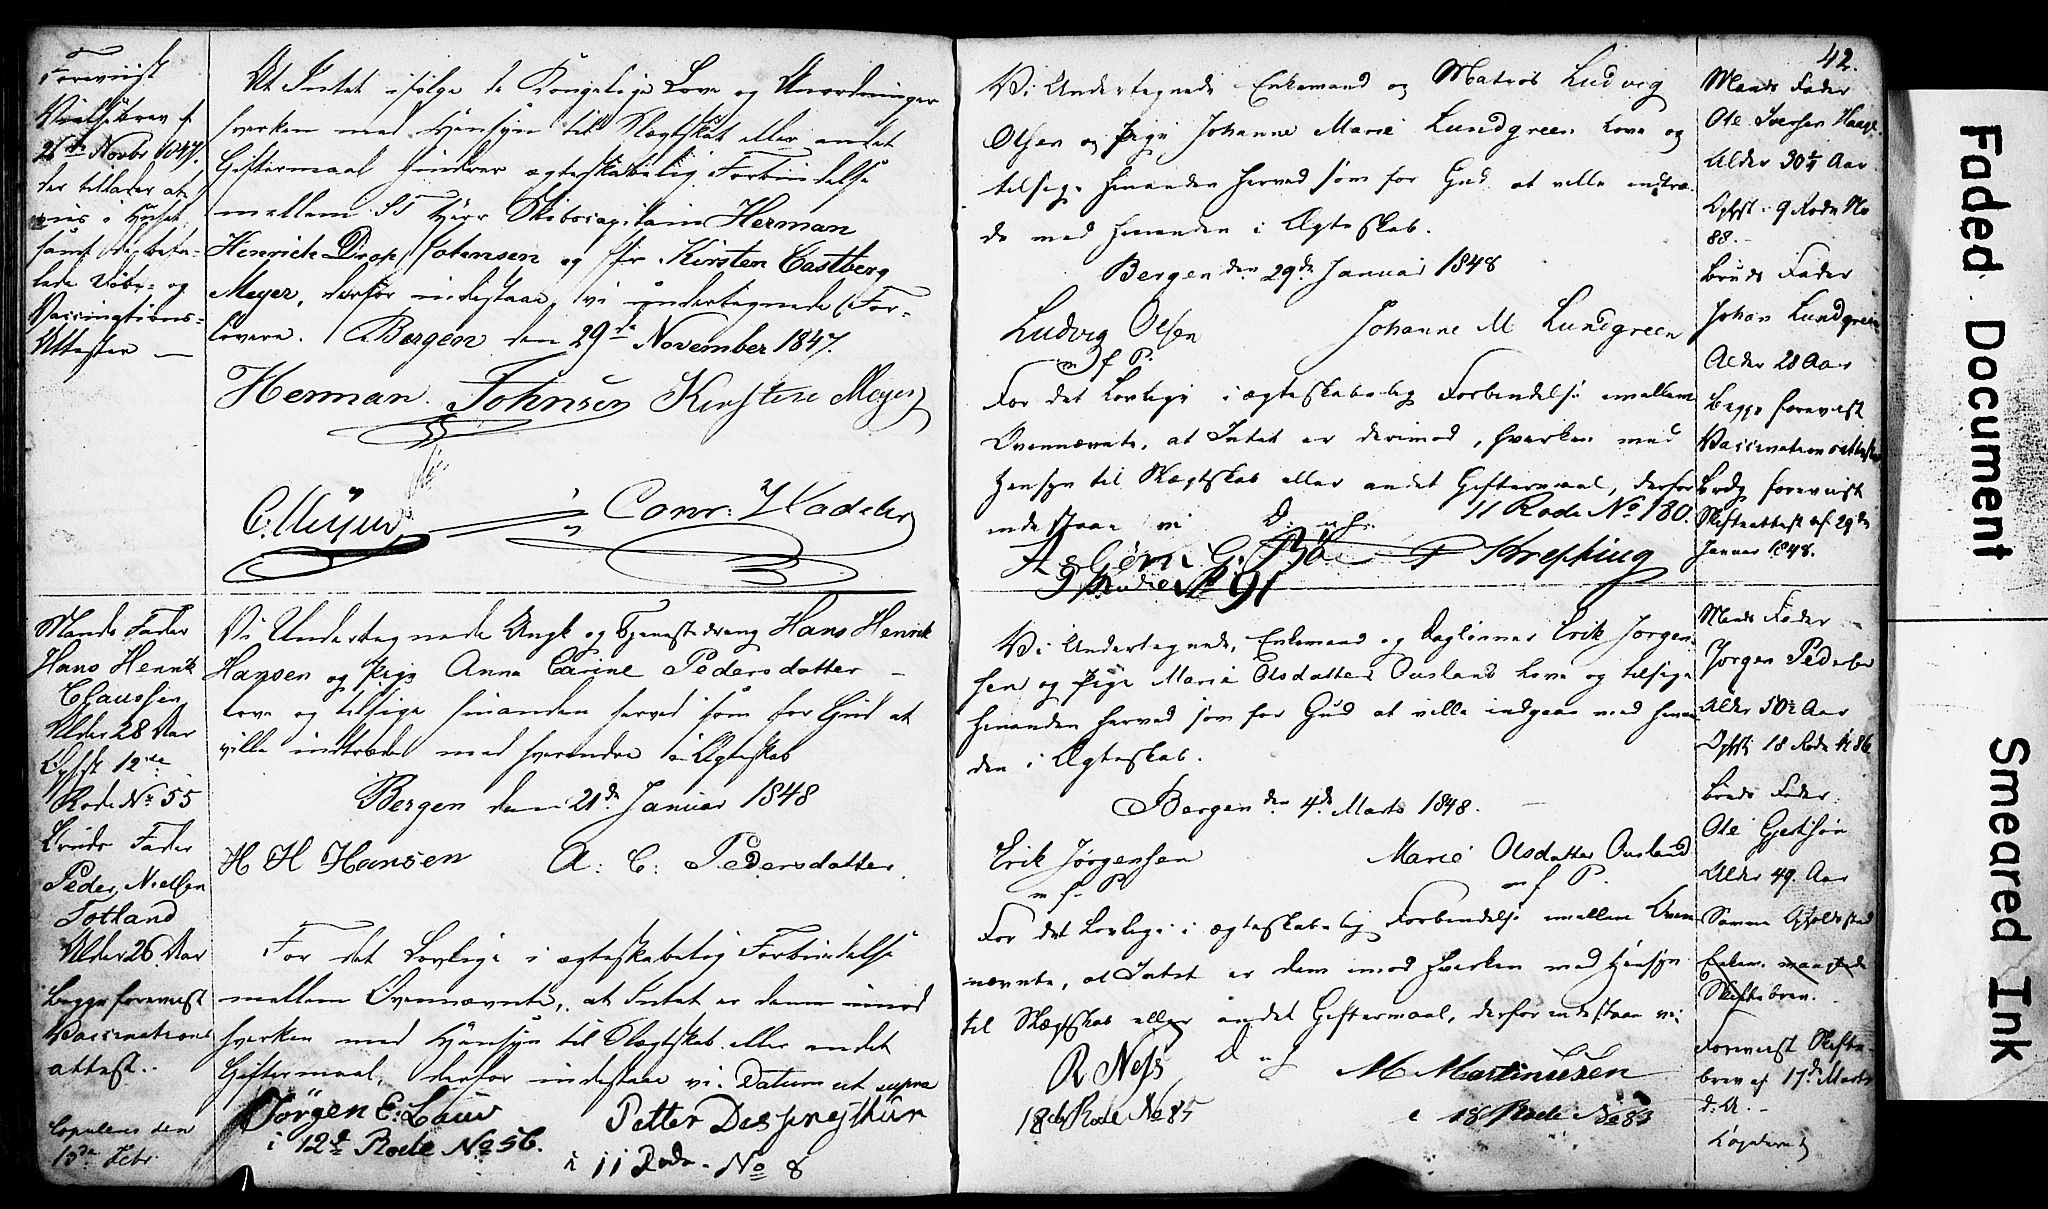 Foreviist
Vielsebrev f
den tillader at
vies i Huset
samt de befa-
lede Døbe- og
Vaccinations-
Attester —
At Intet ifølge de Kongelige Love og Anordninger
hverken med Hensyn til Slægtskab eller andet
Giftermaal hindrer ægteskabelig Forbindelse
mellem ST Herr Skibscapitain Herman
Henrich Drop Johnsen og Jfr. Kirsten Castberg
Meyer, derfor indestaae vi undertegnede For-
lovere. Bergen den 29de November 1847.
Herman Johnsen Kirstine Meyer
C. Meyer Conr:
Mands Fader
Hans Henrik
Claussen
Alder 28 Aar
Opht 12te
Rode No 55
Bruds Fader
Peder Nielsen
Totland
Alder 26 Aar
begge foreviist
Vaccinations
attest.
Copuleres den
13de Febr.
Vi Undertegnede Ungk og Tjenestedreng Hans Henrik
Hansen og Pige Anna Carine Pedersdatter —
love og tilsige hinanden herved som for Gud at
ville indtræde med hverandre i Ægteskab
Bergen den 21de Januar 1848
H H Hansen A: C: Pedersdatter.
For det Lovlige i ægteskabelig Forbindelse
mellem Ovennævnte, at Intet er dem imod
hverken med Hensyn til Slægtskab eller andet
Giftermaal, derfor indestaae vi. Datum ut supra
Jörgen E: Petter
i 12te Rode No 56.
i 11 Rode. No 8
42.
Vi Undertegnede Enkemand og Matros Ludvig
Olsen og Pige Johanne Marie Lundgreen love og
tilsige hinanden herved som for Gud at ville indtræ-
de med hinanden i Ægteskab.
Bergen den 29de Januar 1848
Ludvig Olsen Johanne M Lundgreen
m f P.
For det Lovlige i ægteskabelig Forbindelse imellem
Ovennævnte, at Intet er derimod, hverken med
Hensyn til Slægtskab eller andet Giftermaal, derfor
indestaae vi D. u. s. 11 Rode No 130.
Rode No 91
Mands Fader
Ole Iversen
Alder 30½ Aar
Opht. 9 Rode No
88.
Bruds Fader
Johan Lundgreen
Alder 28 Aar
begge foreviist
Vaccinationsattester
foreviist
Skifteattest af 29de
Januar 1848.
Vi Undertegnede, Enkemand og Daglønner Erik Jørgen-
sen og Pige Marie Olsdatter Ousland love og tilsige
hinanden herved som for Gud at ville indgaae med hinan-
den i Ægteskab.
Bergen den 4de Marts 1848.
Erik Jørgensen Marie Olsdatter Ousland
m f P m f P.
For det Lovlige i ægteskabelig Forbindelse imellem Oven-
nævnte, at Intet er dem imod hverken med Hensyn
til Slægtskab eller andet Giftermaal, derfor indestaae vi
D u s
R Ness M Martinusen
18de Rode No 85 i 18 Rode No 83
Mands Fader
Jørgen Pedersen
Alder 50½ Aar
Opht 18 Rode No 86
Bruds Fader
Ole
Alder 49. Aar
Samme Opholdssted
Enkem. manglede
Skiftebrev.
Foreviist Skifte-
brev af 17de Marts
d: A. —
Faded Document
Smeared Ink